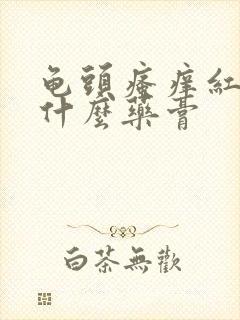 龟頭瘙癢紅
什麼藥膏
白茶無歡